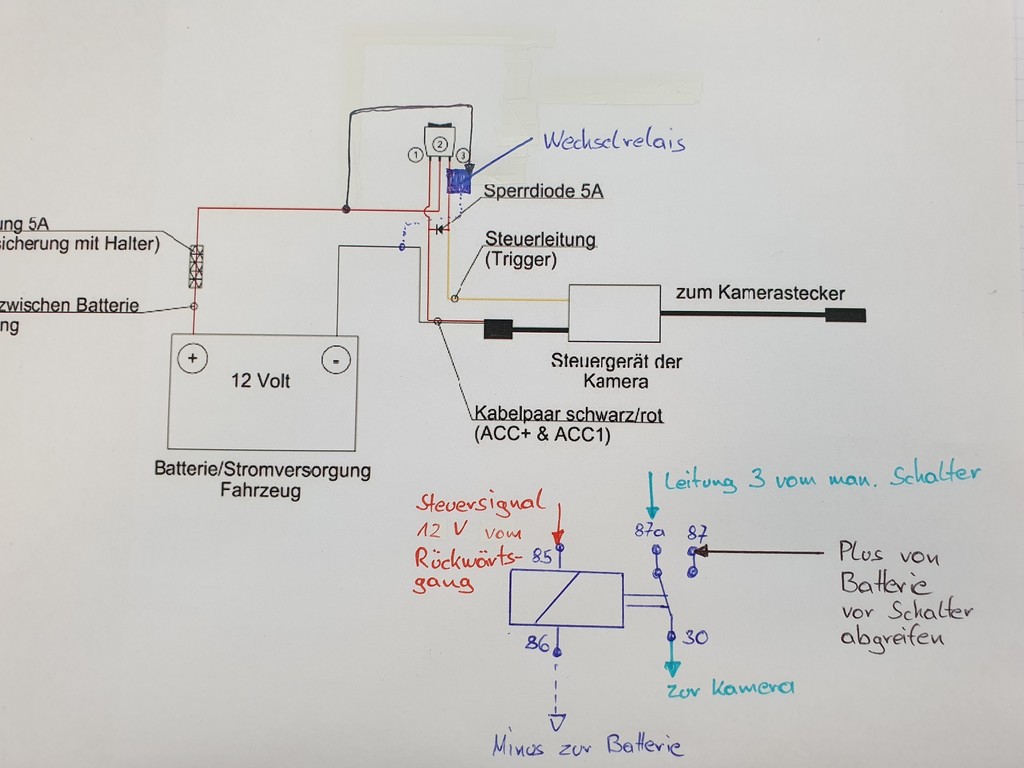 Wechselrelais
1
2
3
Sperrdiode 5A
ung 5A
sicherung mit Halter)
Steuerleitung
(Trigger)
zwischen Batterie
ng
zum Kamerastecker
+
-
12 Volt
Steuergerät der
Kamera
Kabelpaar schwarz/rot
(ACC+ & ACC1)
Batterie/Stromversorgung
Fahrzeug
Leitung 3 vom man. Schalter
Steuersignal
12 V vom
Rückwärts-
gang
85
87a
87
Plus von
Batterie
vor Schalter
abgreifen
86
30
zur Kamera
Minus zur Batterie